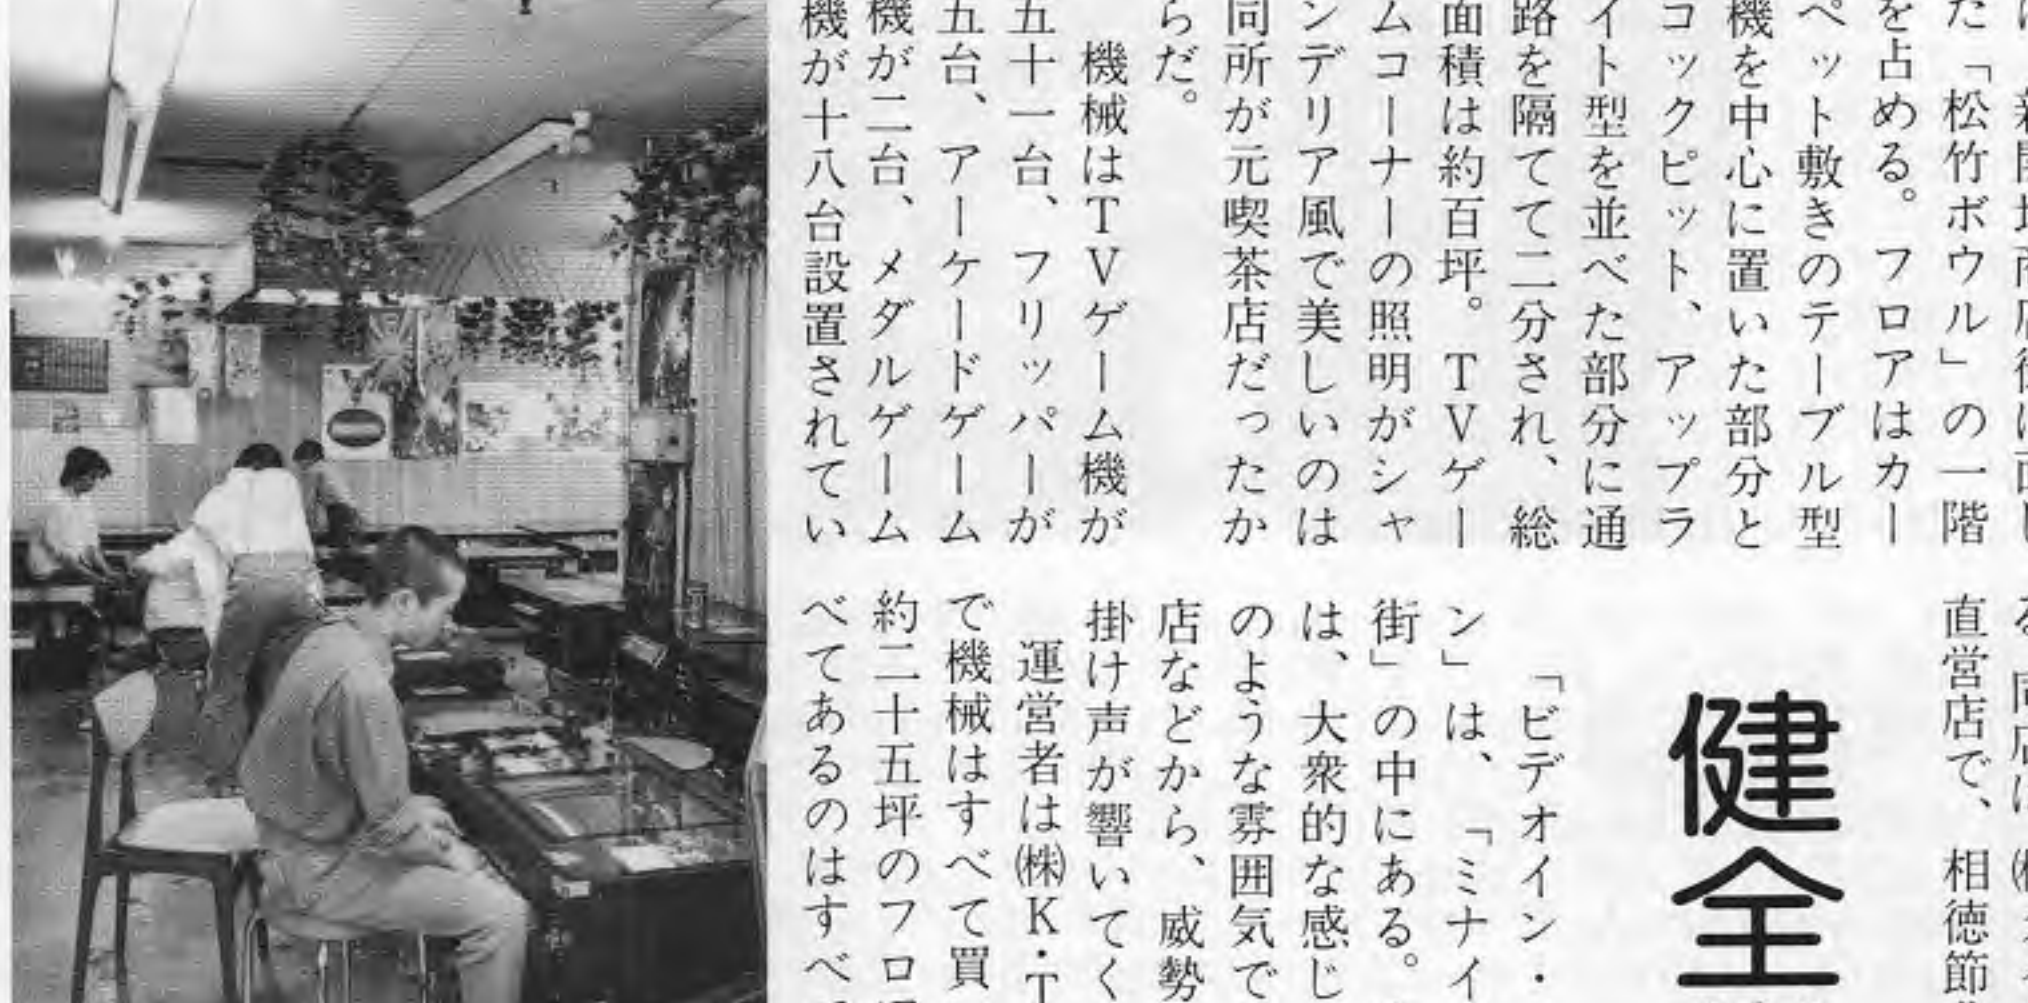 た「松竹ボウル」の一階
を占める。フロアはカー
ペット敷きのテーブル型
機を中心に置いた部分と
コックピット、アップラ
イト型を並べた部分に通
路を隔てて二分され、総
面積は約百坪。TVゲー
ムコーナーの照明がシャ
ンデリア風で美しいのは
同所が元喫茶店だったか
らだ。
機械はTVゲーム機が
五十一台、フリッパーが
五台、アーケードゲーム
機が二台、メダルゲーム
機が十八台設置されてい
直営店で、相徳節
健全
「ビデオイン・
ン」は、「ミナイ
街」の中にある。
は、大衆的な感じ
のような雰囲気で
店などから、威勢
掛け声が響いてく
運営者は㈱K・T
で機械はすべて買
約二十五坪のフロ
べてあるのはすべ